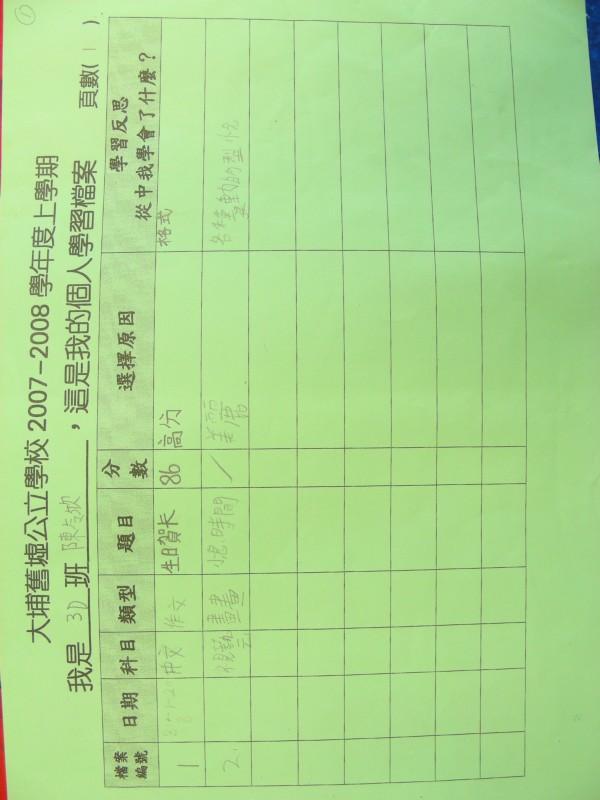 ①
大埔舊墟公立學校 2007-2008 學年度上學期
我是 3D 班 陳，這是我的個人學習檔案 頁數( 1 )
檔案編號 日期 科目 類型 題目 分數 選擇原因 學習反思 從中我學會了什麼？
1 中文 作文 生日賀卡 86 高分 格式
2. 視藝 畫畫 時間 / 美麗 各種動的型